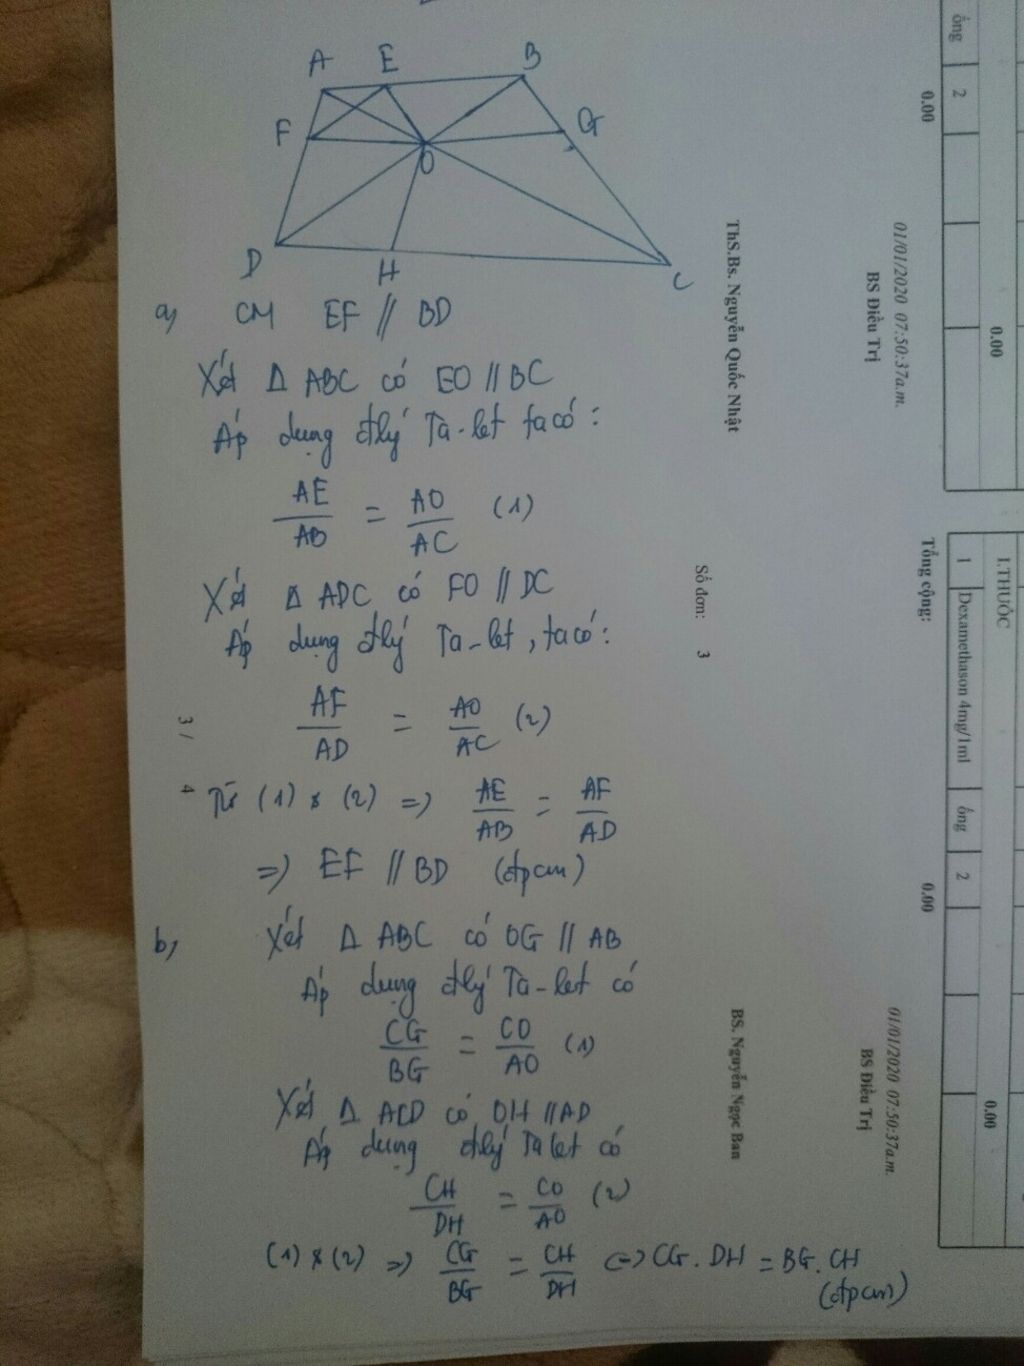 A E B
F O G
D H C
a, CM EF // BD
Xét Δ ABC có EO // BC
Áp dụng đlý Ta-let ta có:
AE/AB = AO/AC (1)
Xét Δ ADC có FO // DC
Áp dụng đlý Ta-let, ta có:
AF/AD = AO/AC (2)
Từ (1) & (2) => AE/AB = AF/AD
=> EF // BD (đpcm)
b, Xét Δ ABC có OG // AB
Áp dụng đlý Ta-let có
CG/BG = CO/AO (1)
Xét Δ ACD có OH // AD
Áp dụng đlý Talet có
CH/DH = CO/AO (2)
(1) & (2) => CG/BG = CH/DH <=> CG.DH = BG.CH
(đpcm)
3 / 4
ống 2 0.00
0.00
01/01/2020 07:50:37a.m.
BS Điều Trị
ThS.Bs. Nguyễn Quốc Nhật
Số đơn: 3
I.THUỐC 0.00
1 Dexamethason 4mg/1ml ống 2
Tổng cộng: 0.00
01/01/2020 07:50:37a.m.
BS Điều Trị
BS. Nguyễn Ngọc Ban